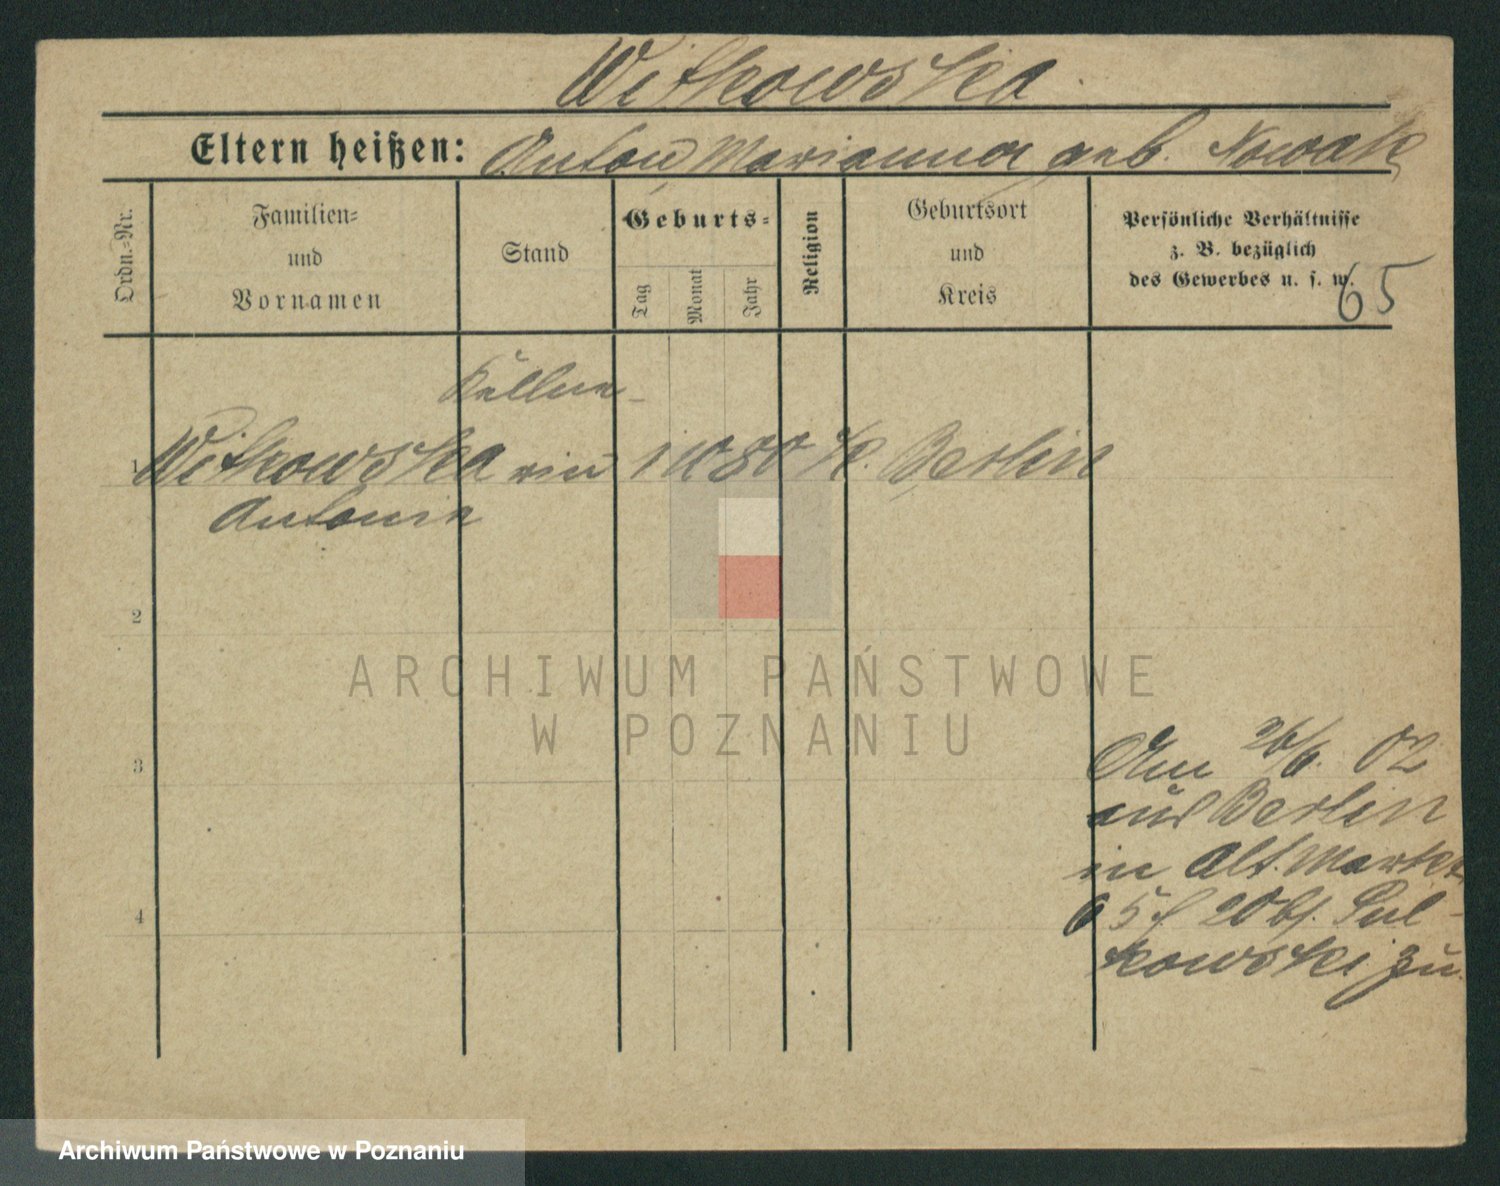 Witkowska
Eltern heißen: Anton Marianna geb. Nowak
Ordn.-Nr.
Familien-
und
Vornamen
Stand
Geburts-
Tag
Monat
Jahr
Religion
Geburtsort
und
Kreis
Persönliche Verhältnisse
z. B. bezüglich
des Gewerbes u. s. w.
65
Kellne-
1 Witkowska rin 1 10 80 k. Berlin
Antonie
2
3
4
Am 26/6. 02
aus Berlin
in Alt. Markt
65 f 20 bj. Sul-
kowski zu.
ARCHIWUM PAŃSTWOWE
W POZNANIU
Archiwum Państwowe w Poznaniu